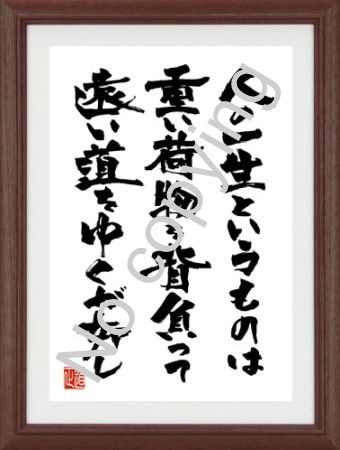 人の一生というものは
重い荷物を背負って
遠い道をゆく
No copying